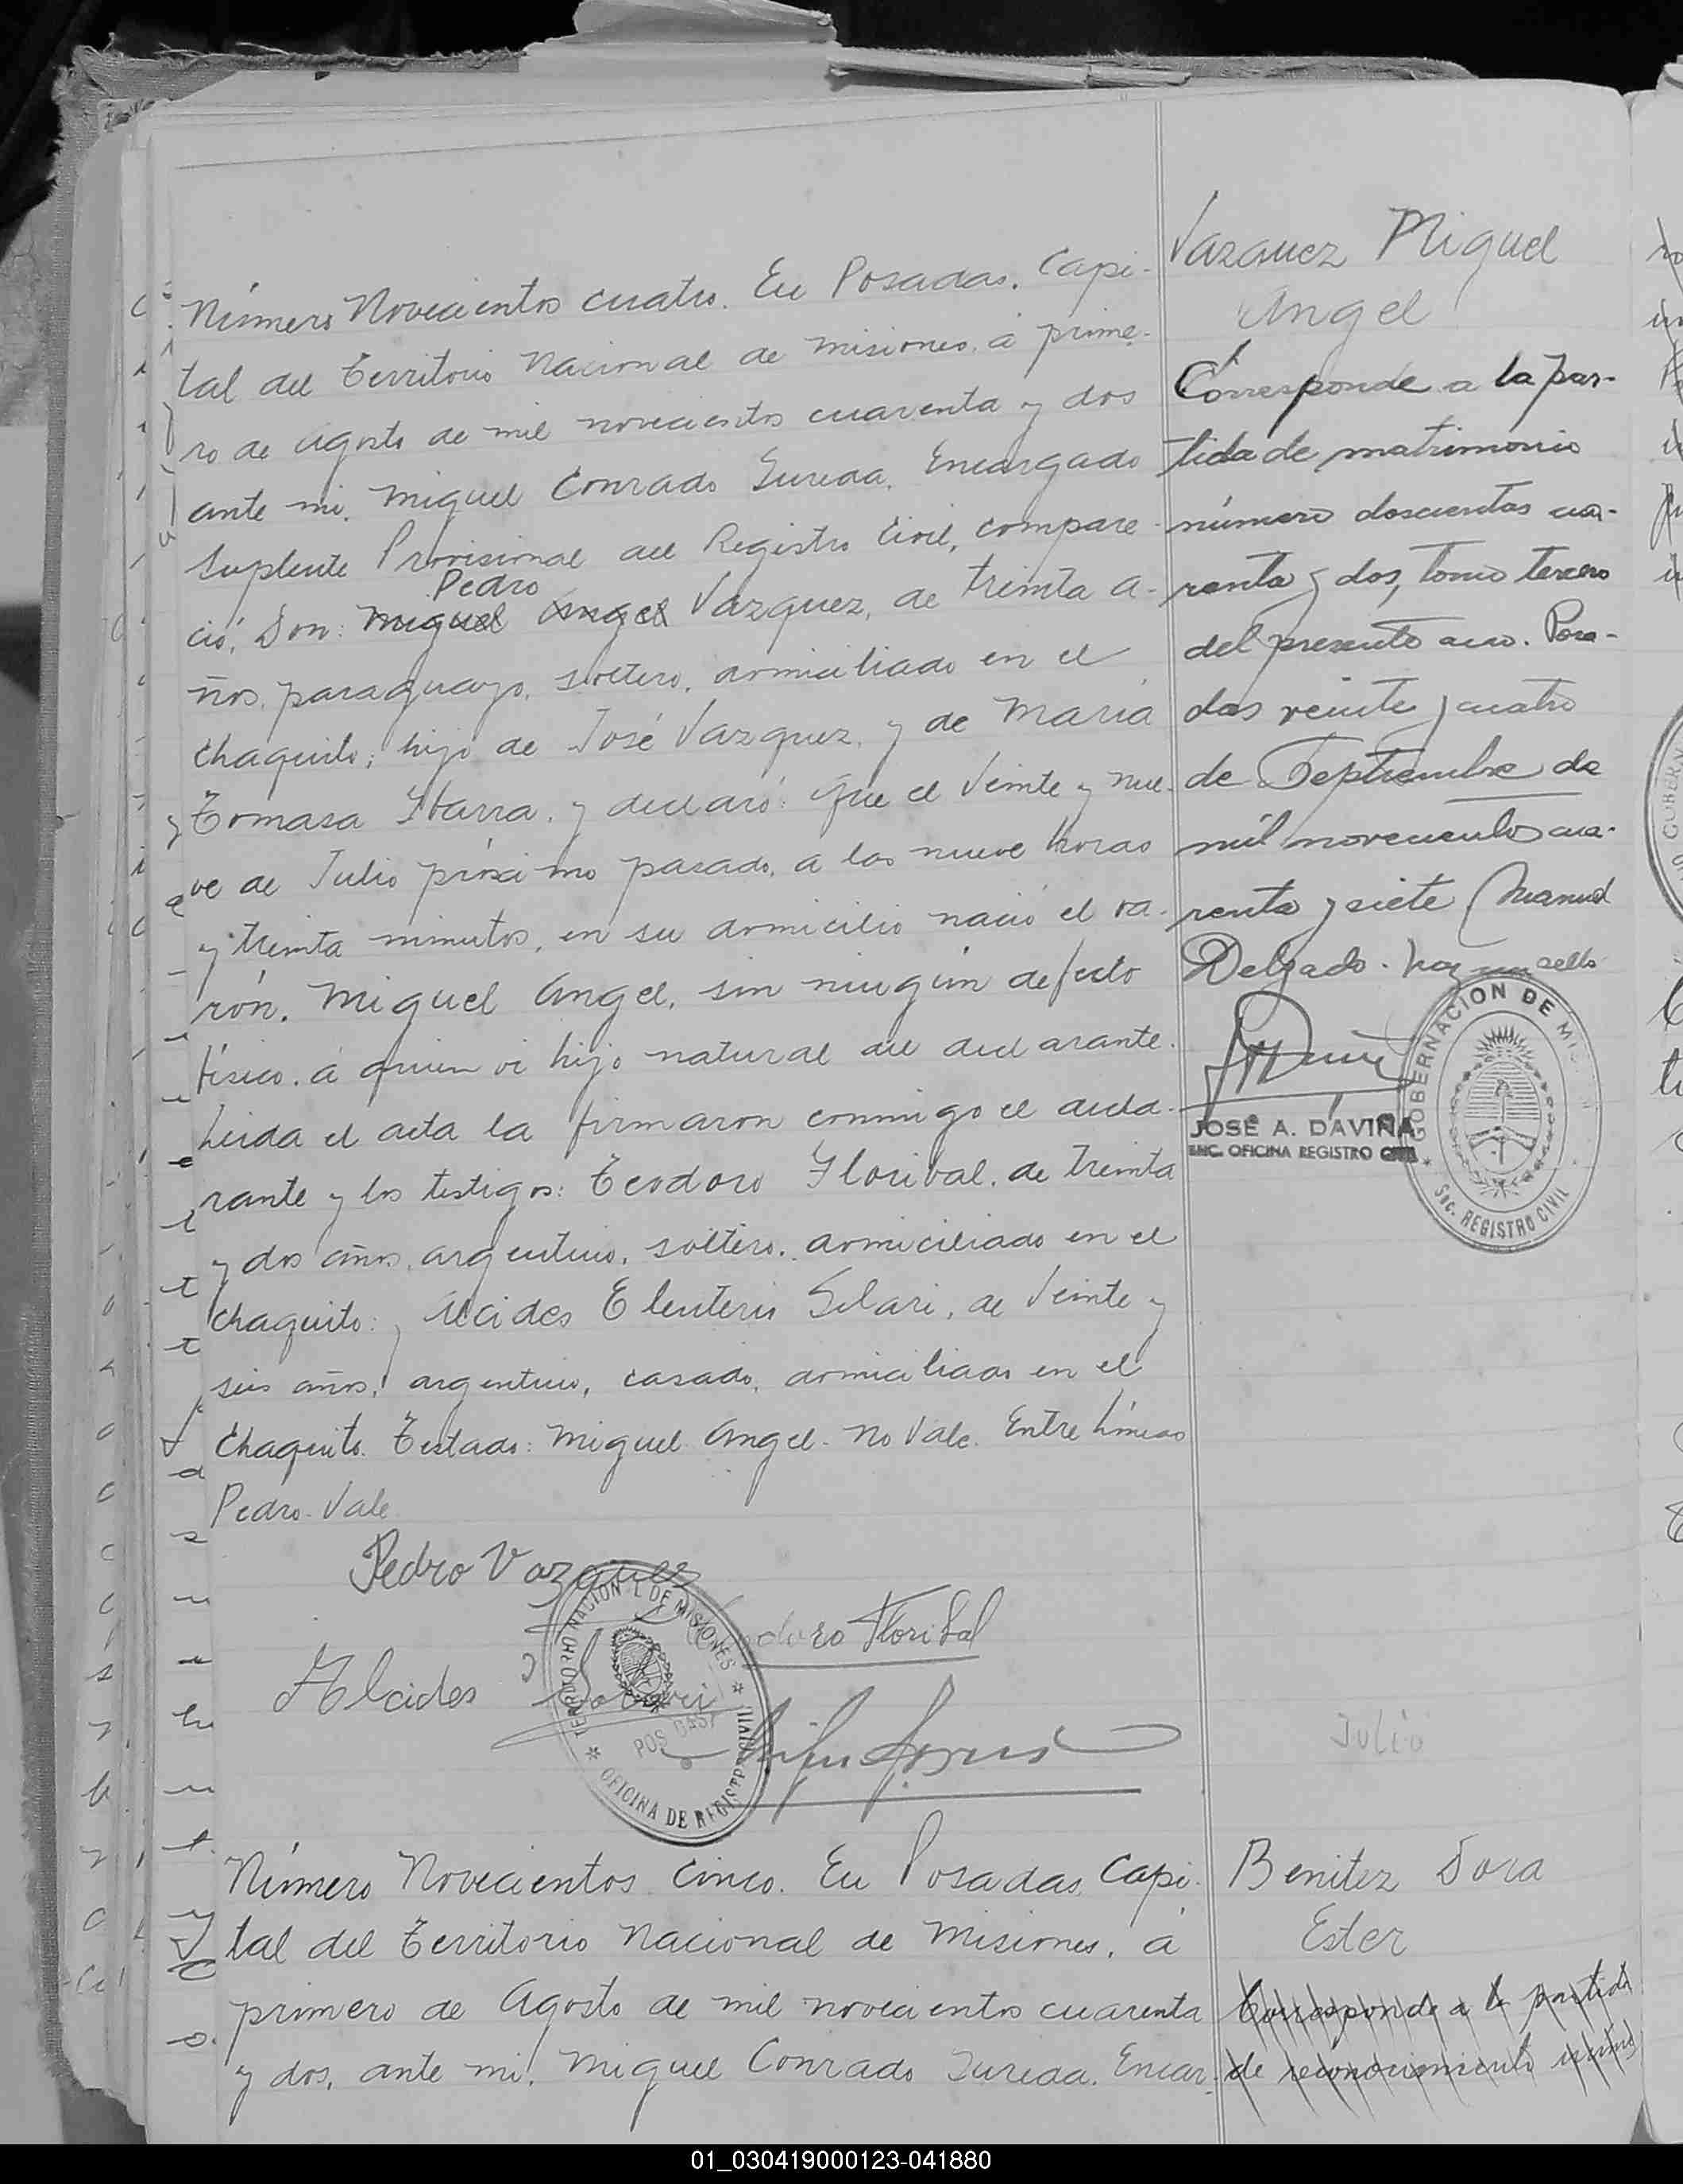 Número Novecientos cuatro. En Posadas. Capi-
tal del Territorio Nacional de Misiones, á prime-
ro de Agosto de mil novecientos cuarenta y dos
ante mi. Miguel Conrado Sureda. Encargado
Suplente Provisional del Registro Civil, compare-
Pedro
ció, Don: Miguel Angel Vazquez, de treinta a-
ños, paraguayo, soltero, domiciliado en el
Chaquito; hijo de José Vazquez, y de Maria
Tomasa Ibarra, y declaró: Que el Veinte y nue-
ve de Julio próximo pasado, a las nueve horas
y treinta minutos, en su domicilio nació el va-
rón. Miguel Angel, sin ningún defecto
físico. á quien vi hijo natural del declarante.
Leida el acta la firmaron conmigo el decla-
rante y los testigos: Teodoro Floribal, de treinta
y dos años, argentino, soltero, domiciliado en el
Chaquito: y Alcides Eleuterio Solari, de Veinte y
seis años, argentino, casado, domiciliado en el
Chaquito. Testado: Miguel Angel. No Vale. Entre líneas
Pedro. Vale
Pedro Vazquez
Teodoro Floribal
Alcides Solari
TERRITORIO NACIONAL DE MISIONES
POSADAS
OFICINA DE REGISTRO CIVIL
Vazquez Miguel
Angel
Corresponde a la par-
tida de matrimonio
número doscientos cua-
renta y dos, tomo tercero
del presente año. Posa-
das veinte y cuatro
de Septiembre de
mil novecientos cua-
renta y siete Manuel
Delgado. hay un sello
JOSÉ A. DAVIÑA
ENC. OFICINA REGISTRO CIVIL
GOBERNACION DE MIS
Sec. REGISTRO CIVIL
Julio
Número Novecientos Cinco. En Posadas, Capi-
tal del Territorio Nacional de Misiones, á
primero de Agosto de mil novecientos cuarenta
y dos, ante mi, Miguel Conrado Sureda. Encar-
Benitez Dora
Ester
Corresponde a la partida
de reconocimiento
01_030419000123-041880